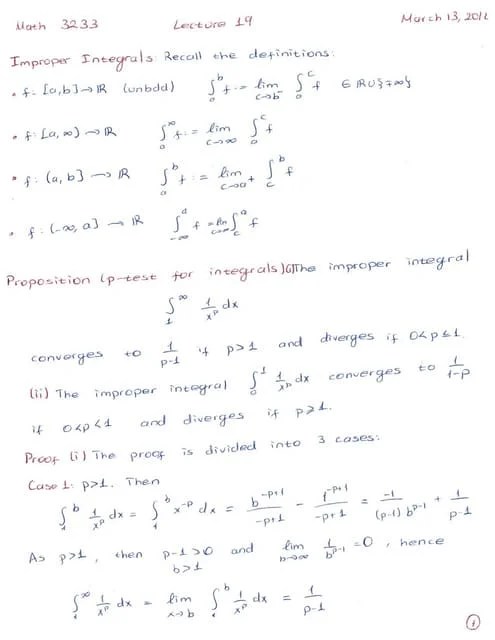 Math 3233 Lecture 19 March 13, 201
Improper Integrals: Recall the definitions:
• f: [a,b] → ℝ (unbdd) ∫_a^b f := lim_{c→b^-} ∫_a^c f ∈ ℝ∪{±∞}
• f: [a,∞) → ℝ ∫_a^∞ f := lim_{c→∞} ∫_a^c f
• f: (a,b] → ℝ ∫_a^b f := lim_{c→a+} ∫_c^b f
• f: (-∞,a] → ℝ ∫_{-∞}^a f = lim ∫_c^a f
Proposition (p-test for integrals) (i) The improper integral
∫_1^∞ 1/x^p dx
converges to 1/(p-1) if p>1 and diverges if 0<p≤1.
(ii) The improper integral ∫_0^1 1/x^p dx converges to 1/(1-p)
if 0<p<1 and diverges if p≥1.
Proof (i) The proof is divided into 3 cases:
Case 1: p>1. Then
∫_1^b 1/x^p dx = ∫_1^b x^{-p} dx = b^{-p+1}/(-p+1) - 1^{-p+1}/(-p+1) = -1/((p-1) b^{p-1}) + 1/(p-1)
As p>1, then p-1>0 and lim_{b→∞} 1/b^{p-1} = 0, hence
b>1
∫_1^∞ 1/x^p dx = lim_{x→b} ∫_1^b 1/x^p dx = 1/(p-1)
1